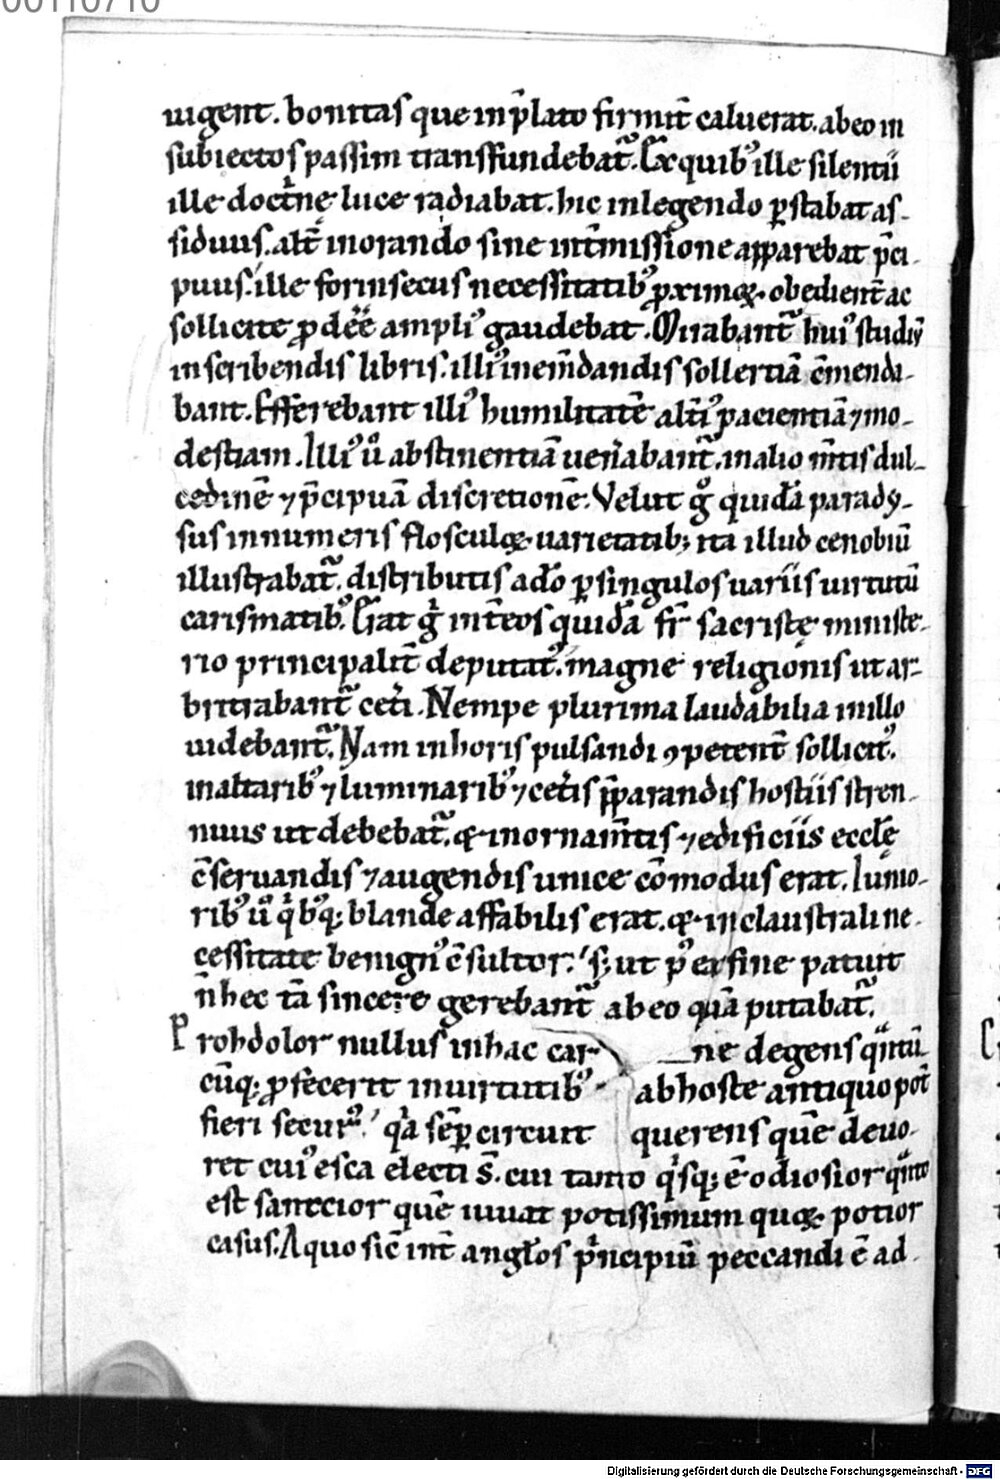 00110710
uigent. bonitas que in p̄lato firmit̄ caluerat. ab eo in
subiectos passim transfundebat᷑. Ex quibꝰ ille silentii
ille doct͛nę luce radiabat. hic in legendo ꝑstabat as-
siduus. alt̄ in orando sine int̄missione apparebat p̄ci-
puus. ille forinsecus necessitatibꝰ ꝓximoꝝ obedient̄ ac
sollicite ꝓ dēe ampliꝰ gaudebat. Mirabant᷑ huiꝰ studiū
in scribendis libris. illiꝰ in em̄dandis sollertiā c̄menda-
bant. Efferebant illiꝰ humilitatē alt̄iꝰ pacientiā ⁊ mo-
destiam. Illiꝰ u̾ abstinentiā uen̾abant᷑. in alio m̄tis dul-
cedinē ⁊ p̄cipuā discretionē. Velut gͦ quidā parady-
sus innumeris flosculoꝝ uarietatibꝫ ita illud cenobiū
illustrabat᷑. distributis a dō ꝑ singulos uariis uirtutū
carismatibꝰ. Erat gͥ int̄ eos quidā fr̄ sacristę ministe-
rio principalit̄ deputatꝰ. magne religionis ut ar-
bitrabant᷑ cet̾i. Nempe plurima laudabilia in illo
uidebant᷑. Nam in horis pulsandi ꝯpetent̄ sollicitꝰ.
in altaribꝰ ⁊ luminaribꝰ ⁊ cet̾is p̄parandis hostiis stren-
nuus ut debebat᷑. qͦꝫ in ornam̄tis ⁊ edificiis eccl̄ę
c̄seruandis ⁊ augendis unice cōmodus erat. Iunio-
ribꝰ u̾ qͥbꝰqꝫ blande affabilis erat. qͦꝫ in claustrali ne-
cessitate benignꝰ c̄sultor. sꝫ ut pꝰ ex fine patuit
n̄ hec tā sincere gerebant᷑ ab eo quā putabat᷑.
Proh dolor nullus in hac car ne degens qͣntū-
cūqꝫ ꝓfecerit in uirtutibꝰ ab hoste antiquo pot̄
fieri securꝰ. qͥa sēꝑ circuit querens quē deuo-
ret cuiꝰ esca electi s̄. cui tanto qͥsqꝫ ē odiosior qͣnto
est sanctior quē iuuat potissimum quoꝝ potior
casus. A quo sic̄ int̄ angl̄os pͥncipiū peccandi ē ad-
Digitalisierung gefördert durch die Deutsche Forschungsgemeinschaft - DFG